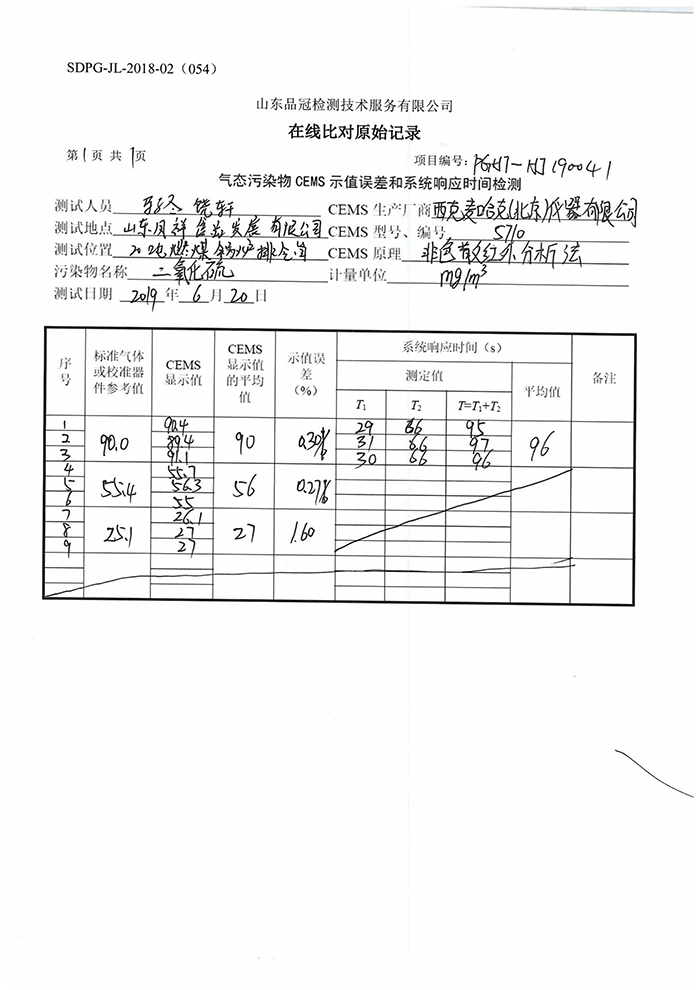 SDPG-JL-2018-02（054）
山东品冠检测技术服务有限公司
在线比对原始记录
第1页 共1页 项目编号：PGHJ-HJ190041
气态污染物 CEMS 示值误差和系统响应时间检测
测试人员 轩 CEMS 生产厂商 西克麦哈克(北京)仪器有限公司
测试地点 山东凤祥食品发展有限公司 CEMS 型号、编号 S710
测试位置 20吨燃煤锅炉排气筒 CEMS 原理 非色散红外分析法
污染物名称 二氧化硫 计量单位 mg/m³
测试日期 2019 年 6 月 20 日
序号 标准气体或校准器件参考值 CEMS 显示值 CEMS 显示值的平均值 示值误差（%） 系统响应时间（s） 备注
测定值 平均值
T1 T2 T=T1+T2
1 90.4 29 66 95
2 90.0 89.4 90 0.30% 31 66 97 96
3 91.1 30 66 96
4 55.7
5 55.4 56.3 56 0.27%
6 55
7 26.1
8 25.1 27 27 1.60
9 27